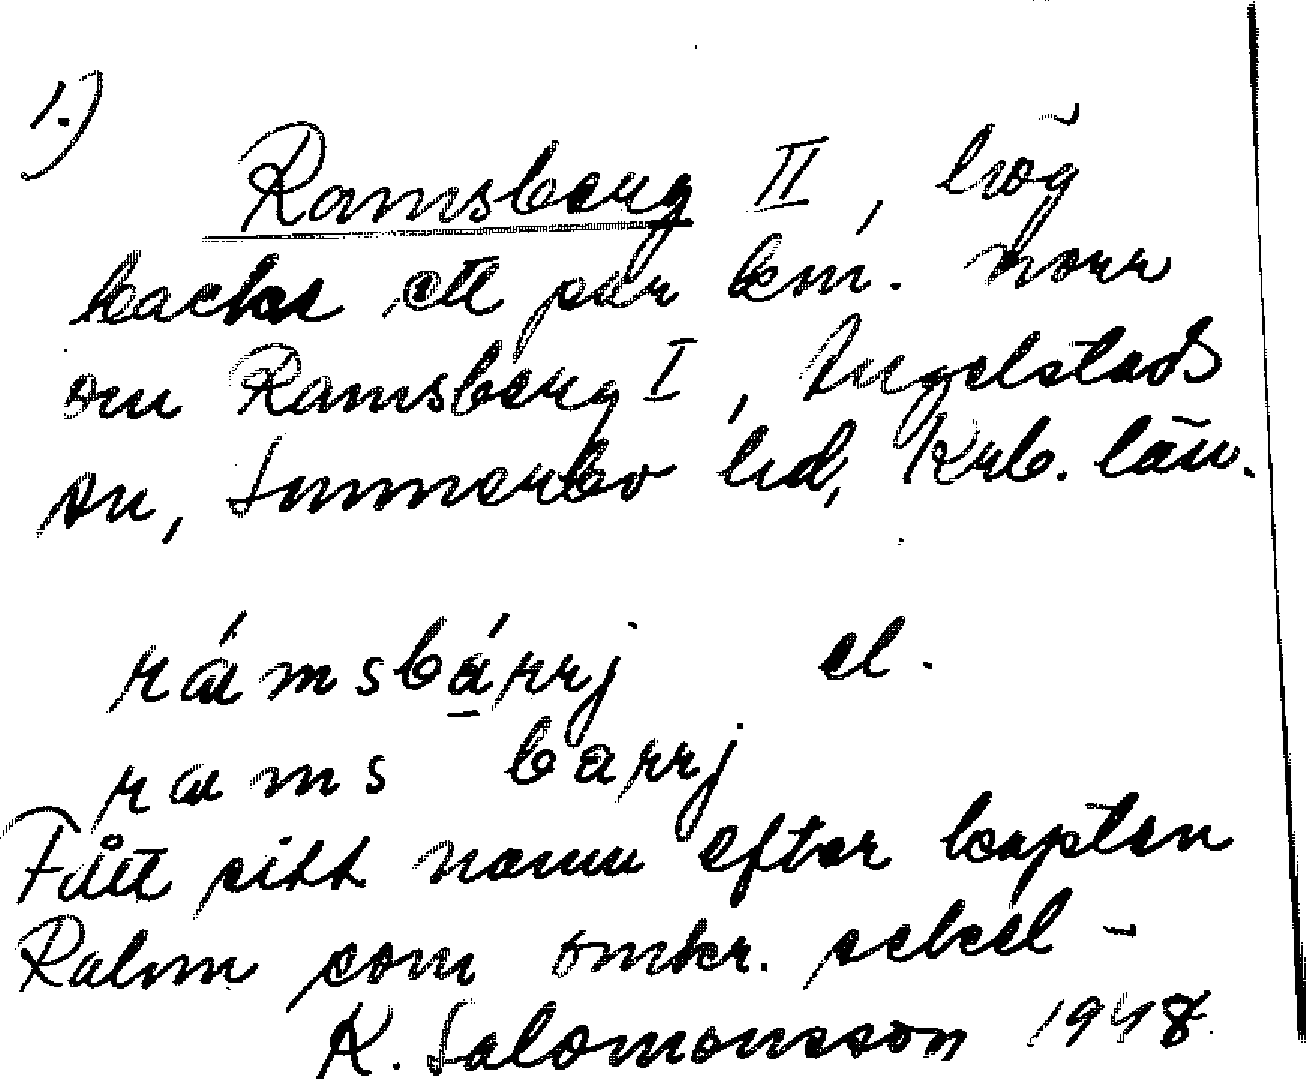 1.)
Ramsberg II, hög
backe ett par km. norr
om Ramsberg I, Ingelstads
sn, Sunnerbo hd, Krb. län.
rámsbárrj el.
rams barrj
Fått sitt namn efter kapten
Ralm som omkr. sekel-
K. Salomonsson 1948